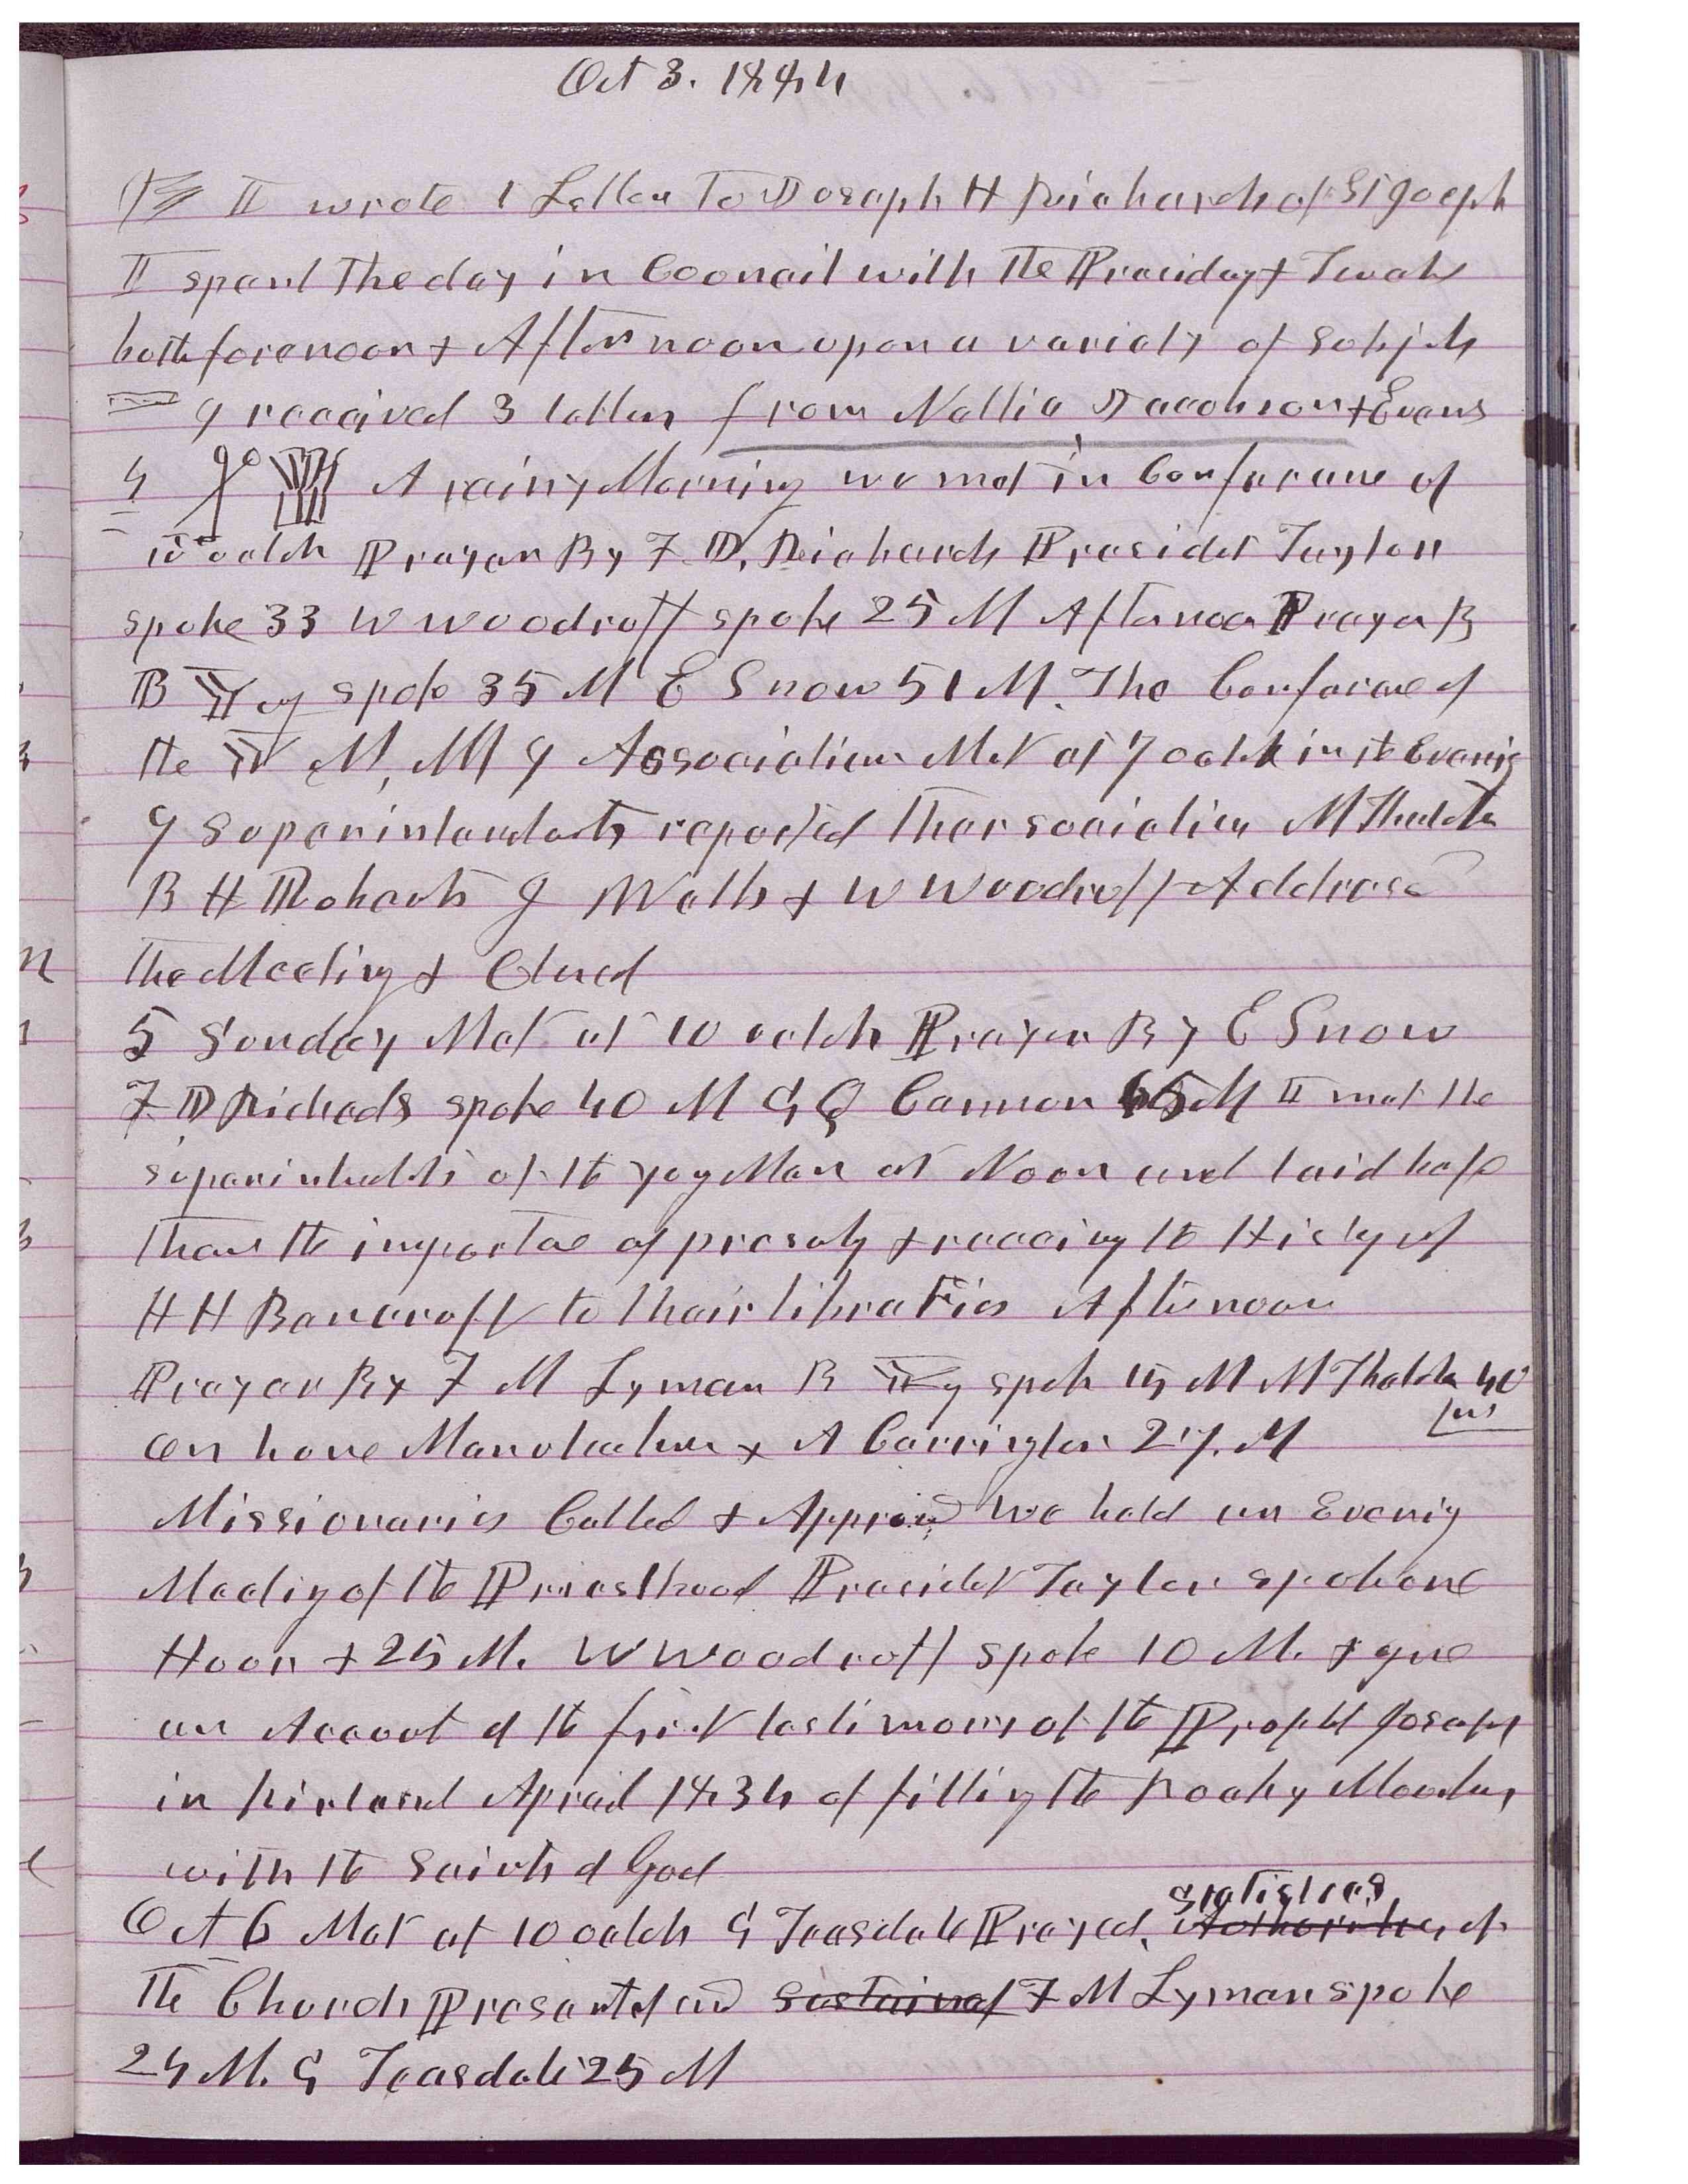 Oct 3. 1884
I wrote 1 Letter To Joseph H Richards of St Joseph
I spent The day in Councail with the Presidency & Twelve
both forenoon & Afternoon upon a variety of subjets
I received 3 letters from Nellie, Jacobson & Evans
4 A rainy Morning we met in Conference at
10 oclok Prayer By F. D. Richards Presidet Taylor
spoke 33 W Woodruff spoke 25 M Afternoon Prayer B
B Young spoke 35 M E Snow 51 M. The Conference of
the Y M, M I Association Met at 7 oclok in the Evenig
9 Superintendents reported ther sociation M Thatcher
B H Roberts J Wells & W Woodruff Addrese
the Meeting & Closed
5 Sunday Met at 10 oclok Prayer By E Snow
F D Richads spoke 40 M G Q Cannon 65 M I met the
superintendets of the yog Men at Noon and laid before
them the importae of procurig & receiving the Histy of
H H Bancroft to their libraries Afternoon
Prayer By F M Lyman B Young spok 15 M M Thatcher 40
on home Manufactures & A Carrington 27. M
Missionaries Called & Appoind We held an Evenig
Meetig of the Priesthood Presidet Taylor spoke one
Hour + 25 M. W Woodruff spoke 10 M. & gave
an Account of the first testimony of the Prophet Joseph
in Kirtland Apriel 1834 of filling the Rocky Mountains
with the Saints of God
Oct 6 Met at 10 oclok G Teasdale Prayed, Statistics Authorities of
The Church Presented and Sustained F M Lyman spoke
24 M. G Teasdale 25 M